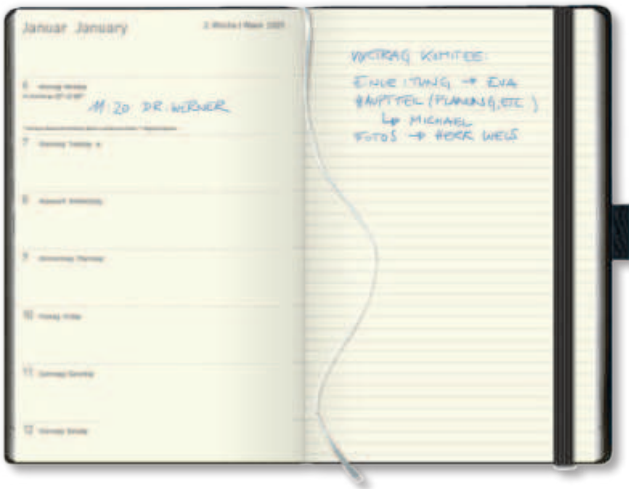 Januar January
2. Woche | Week
6 Montag Monday
11:20 DR. WERNER
7 Dienstag Tuesday
8 Mittwoch Wednesday
9 Donnerstag Thursday
10 Freitag Friday
11 Samstag Saturday
12 Sonntag Sunday
VORTRAG KOMITEE:
EINLEITUNG → EVA
HAUPTTEIL (PLANUNG, ETC)
↳ MICHAEL
FOTOS → HERR WEIS